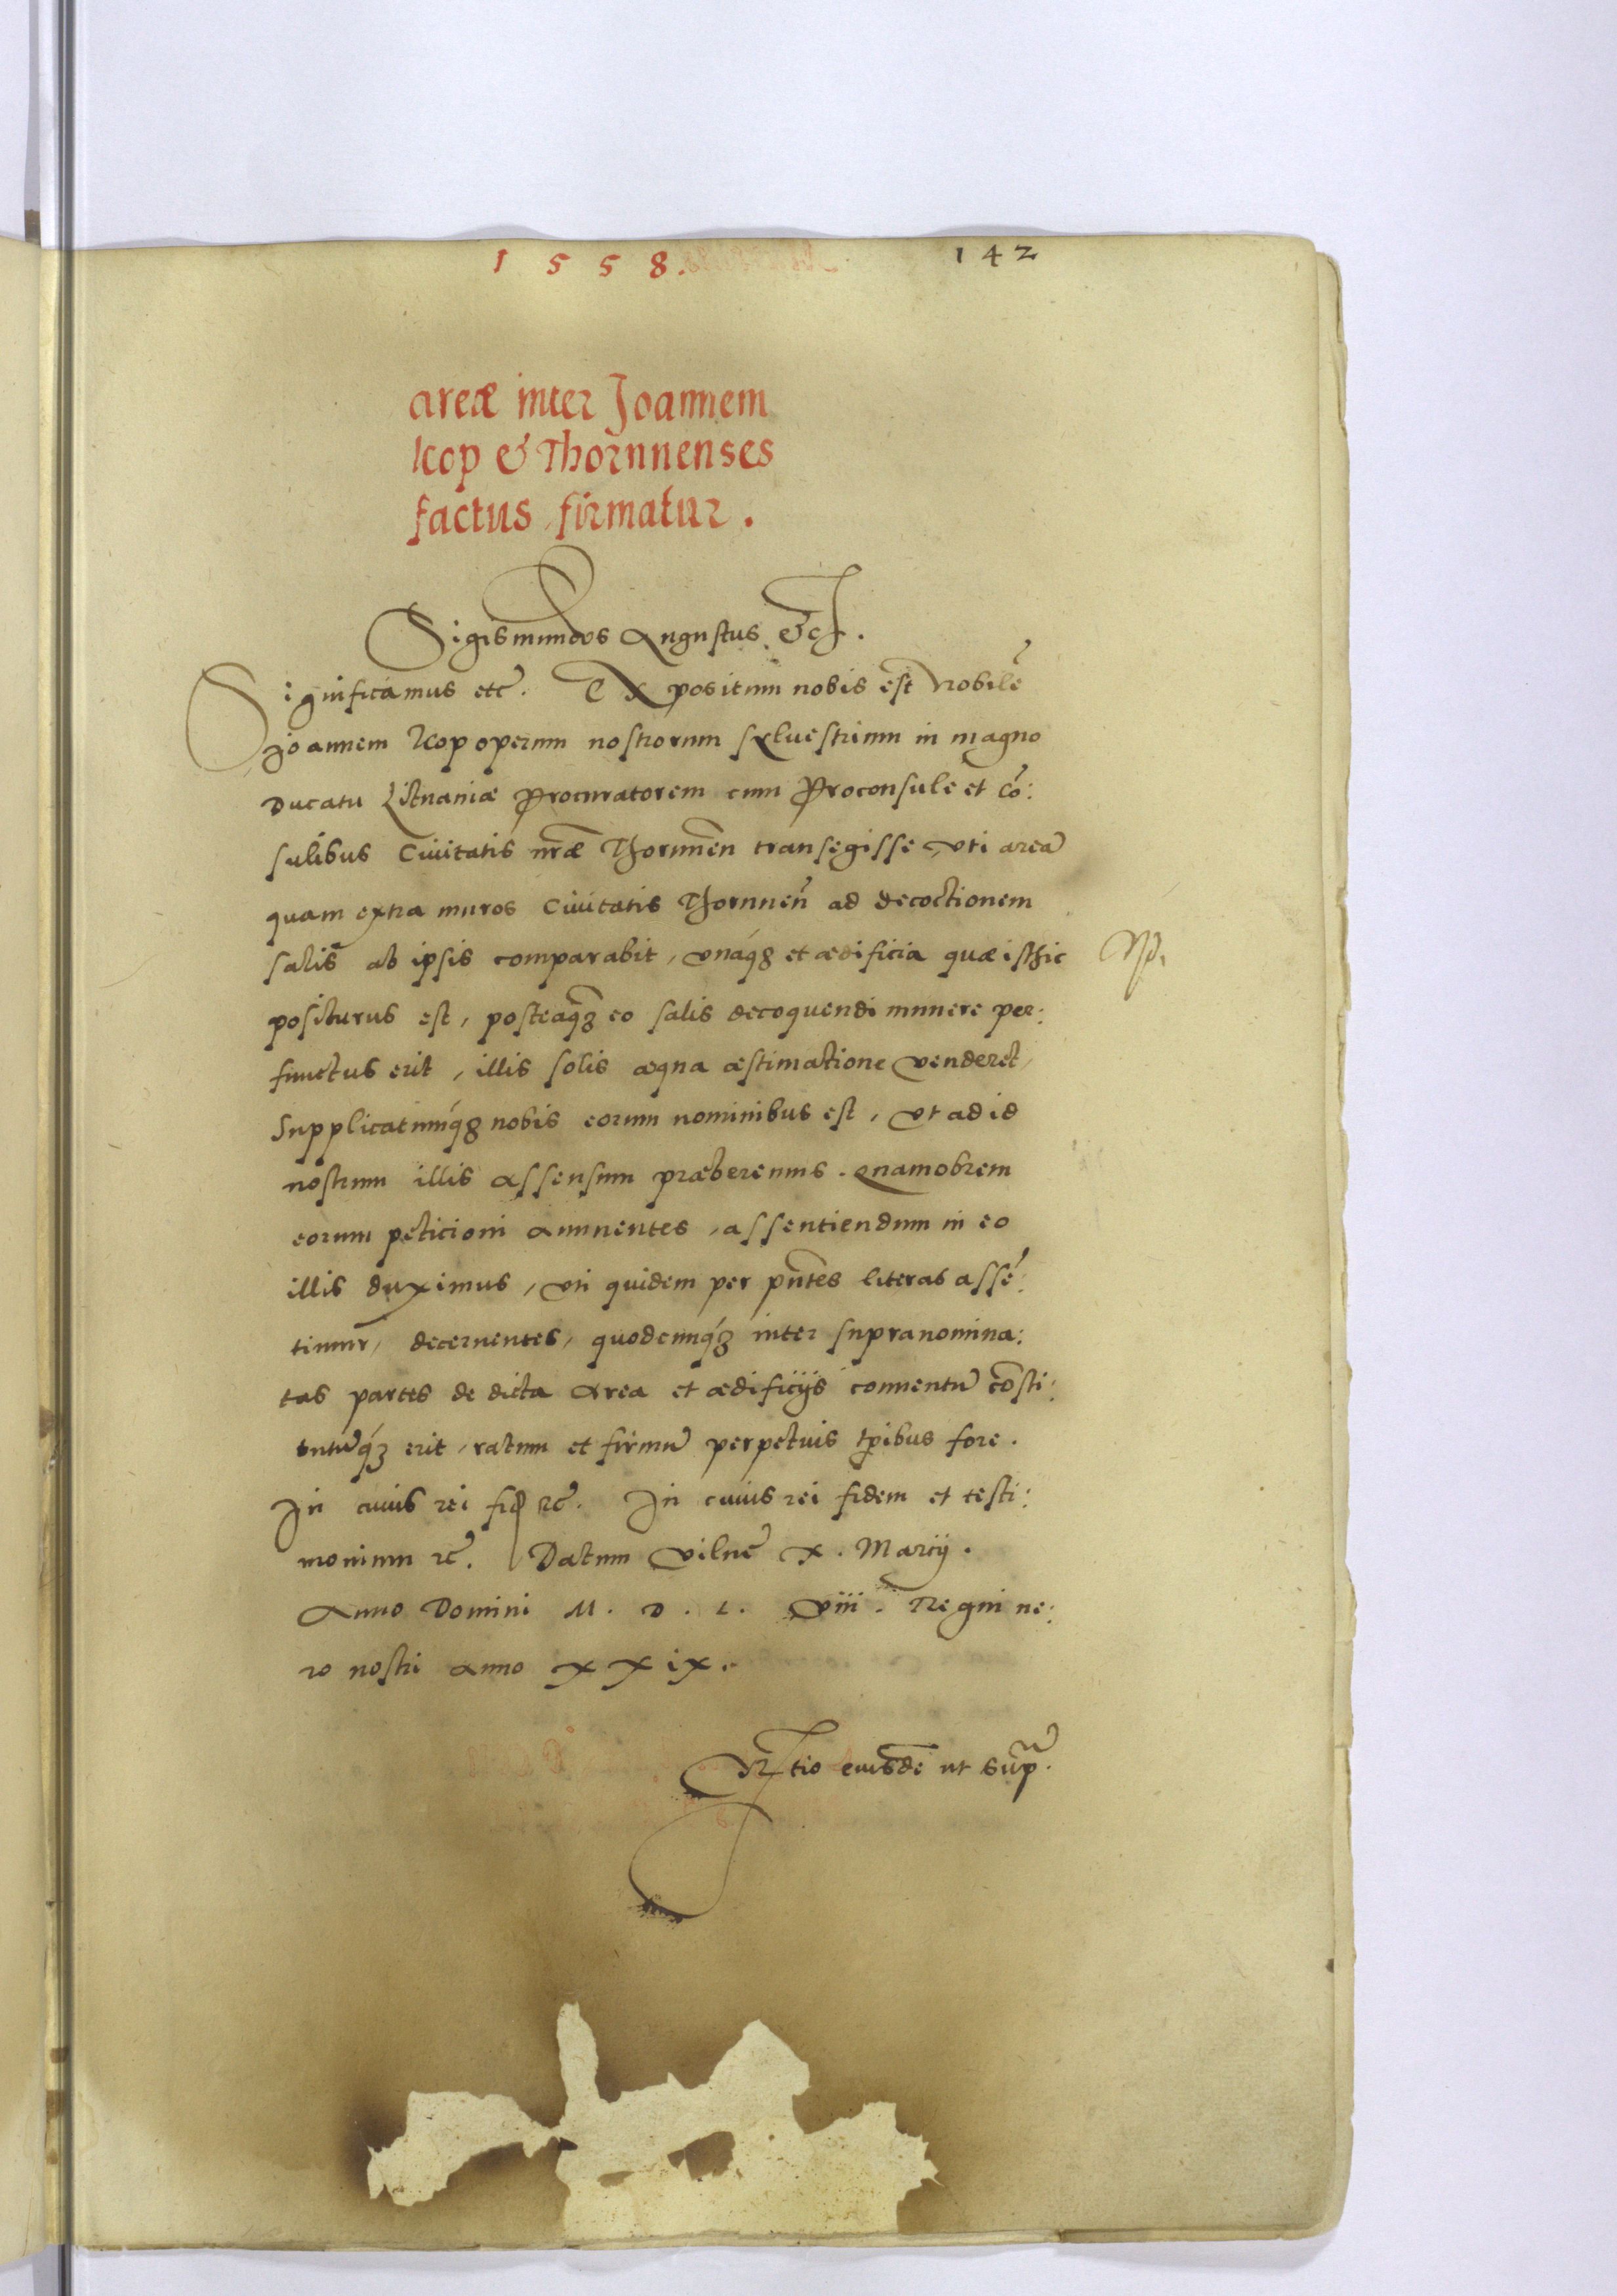 1558. 142
areæ inter Joannem
Kop & Thorunenses
factus, firmatur.
Sigismundus Augustus &c.
Significamus etc̃. Expositum nobis est̃ Nobilẽ
Joannem Kop operum nostrorum sylvestrium in magno
Ducatu Lituaniæ Procuratorem cum Proconsule et Cõ:
sulibus Civitatis nr̃æ Thorunen̄ transegisse, uti areã
quam extra muros Civitatis Thorunen̄ ad decoctionem
salis ab ipsis comparabit, unaq́ꝫ et ædificia quæ isthic
positurus est, posteaq̃ꝫ eo salis decoquendi munere per:
functus erit, illis solis æqua æstimatione venderet,
Supplicatumq́ꝫ nobis eorum nominibus est, ut ad id
nostrum illis assensum præberemus. Quamobrem
eorum peticioni annuentes, assentiendum in eo
illis duximus, uti quidem per pn̄tes literas assẽ:
timur, decernentes, quodcunq́ꝫ inter supranomina:
tas partes de dicta Area et ædificijs conventũ cõsti:
tutũq́ꝫ erit, ratum et firmũ perpetuis tp̃ibus fore.
In cuius rei fid ꝛc̃. In cuius rei fidem et testi:
monium ꝛc̃. Datum Vilnẽ X. Marcij.
Anno Domini M. D. L. Viii. Regni ve:
ro nostri Anno XXiX.
R̃tio eiusdẽ ut sup̃.